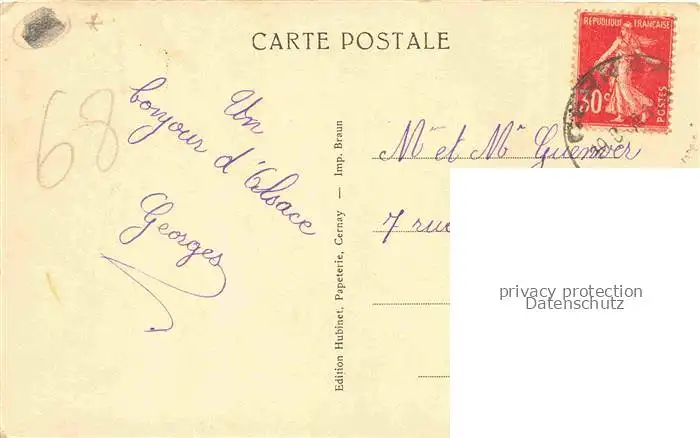 CARTE POSTALE
RÉPUBLIQUE FRANÇAISE
30c
POSTES
68
Un
bonjour d'Alsace
Georges
Edition Hubinet, Papeterie, Cernay — Imp. Braun
Mr et Mr
7 rue
privacy protection
Datenschutz